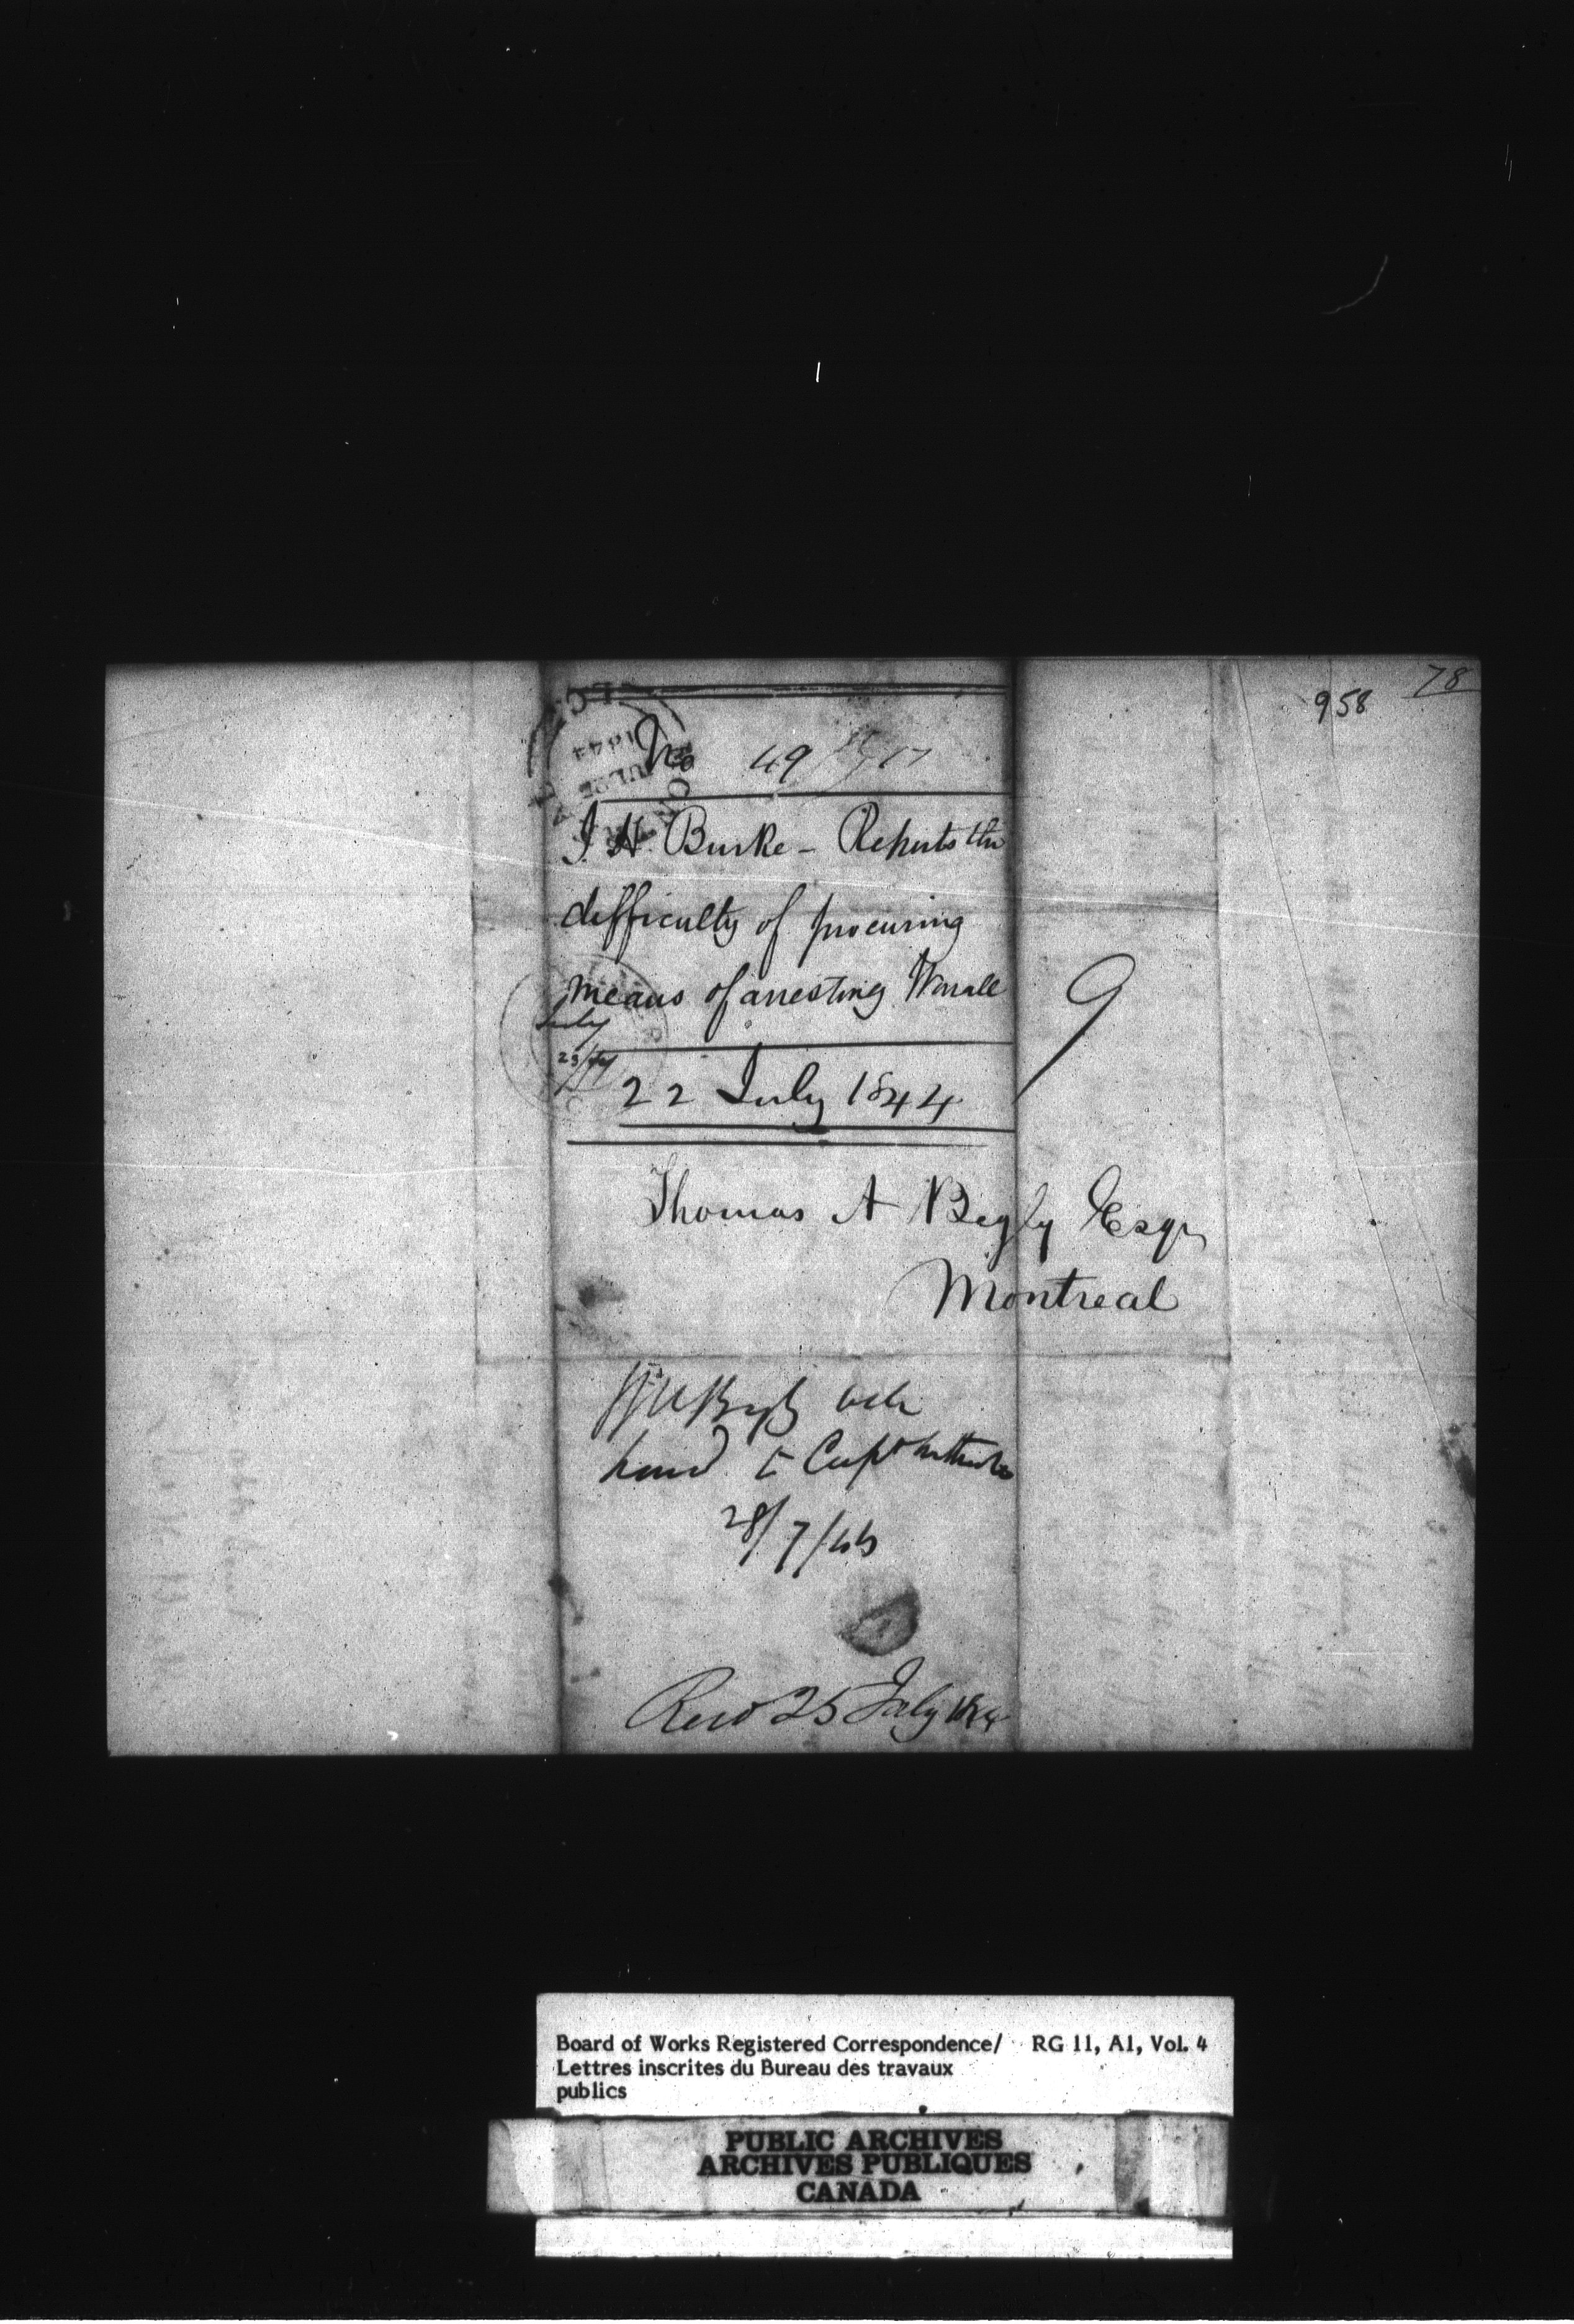 78
958
No 4917
J. H. Burke - Reports the
difficulty of procuring
means of arresting
July
23/44
22 July 1844
9
Thomas A Begly Esqr
Montreal
Mr Begly will
hand to Capt
28/7/44
Recd 25 July 1844
Board of Works Registered Correspondence/ RG 11, A1, Vol. 4
Lettres inscrites du Bureau des travaux
publics
PUBLIC ARCHIVES
ARCHIVES PUBLIQUES
CANADA